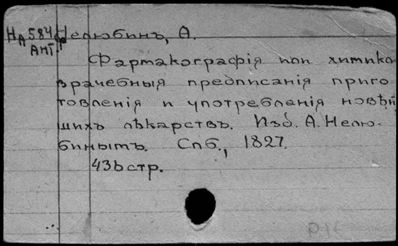 НА584 Нелюбинъ, А.
АНТ.
Фармакографія или химико
врачебныя предписанія приго
товленія и употребленія новѣй
шихъ лѣкарствъ. Изд. А. Нелю-
бинымъ. Спб., 1827.
436 стр.